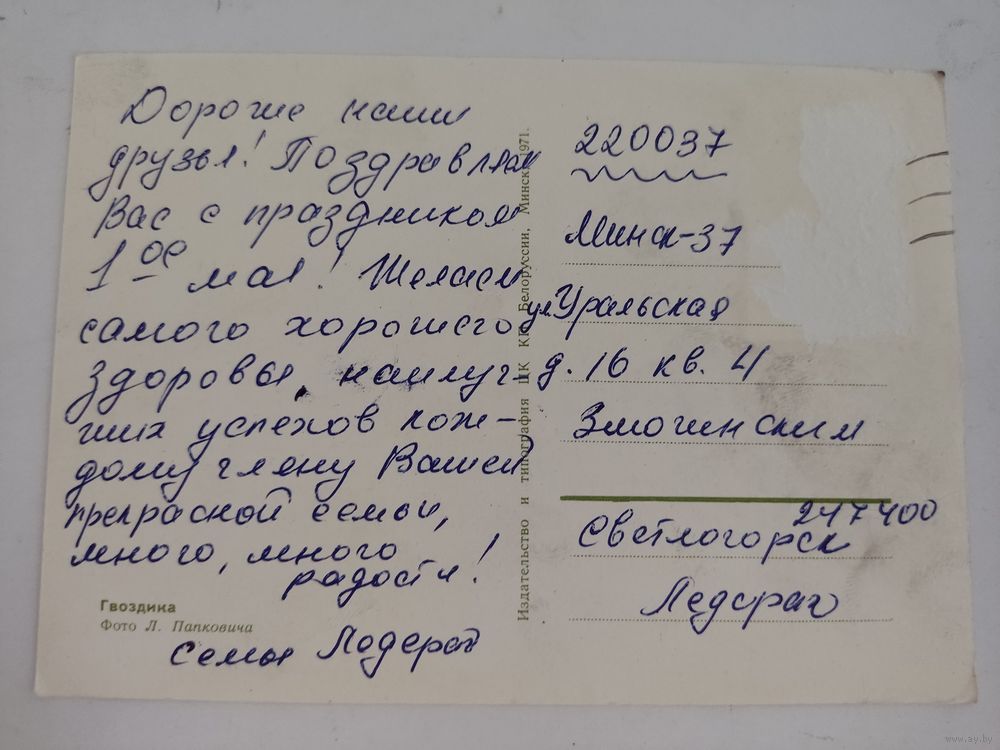 Дорогие наши
друзья! Поздравляем
Вас с праздником
1ое мая! Желаем
самого хорошего
здоровья, наилуч-
ших успехов каж-
дому члену Вашей
прекрасной семьи,
много, много
радости!
Гвоздика
Фото Л. Папковича
Семья
Издательство и типография ЦК КП Белоруссии, Минск, 1971.
220037
Минск-37
ул Уральская
д. 16 кв. 4
Змогинским
247400
Светлогорск
www.ay.by